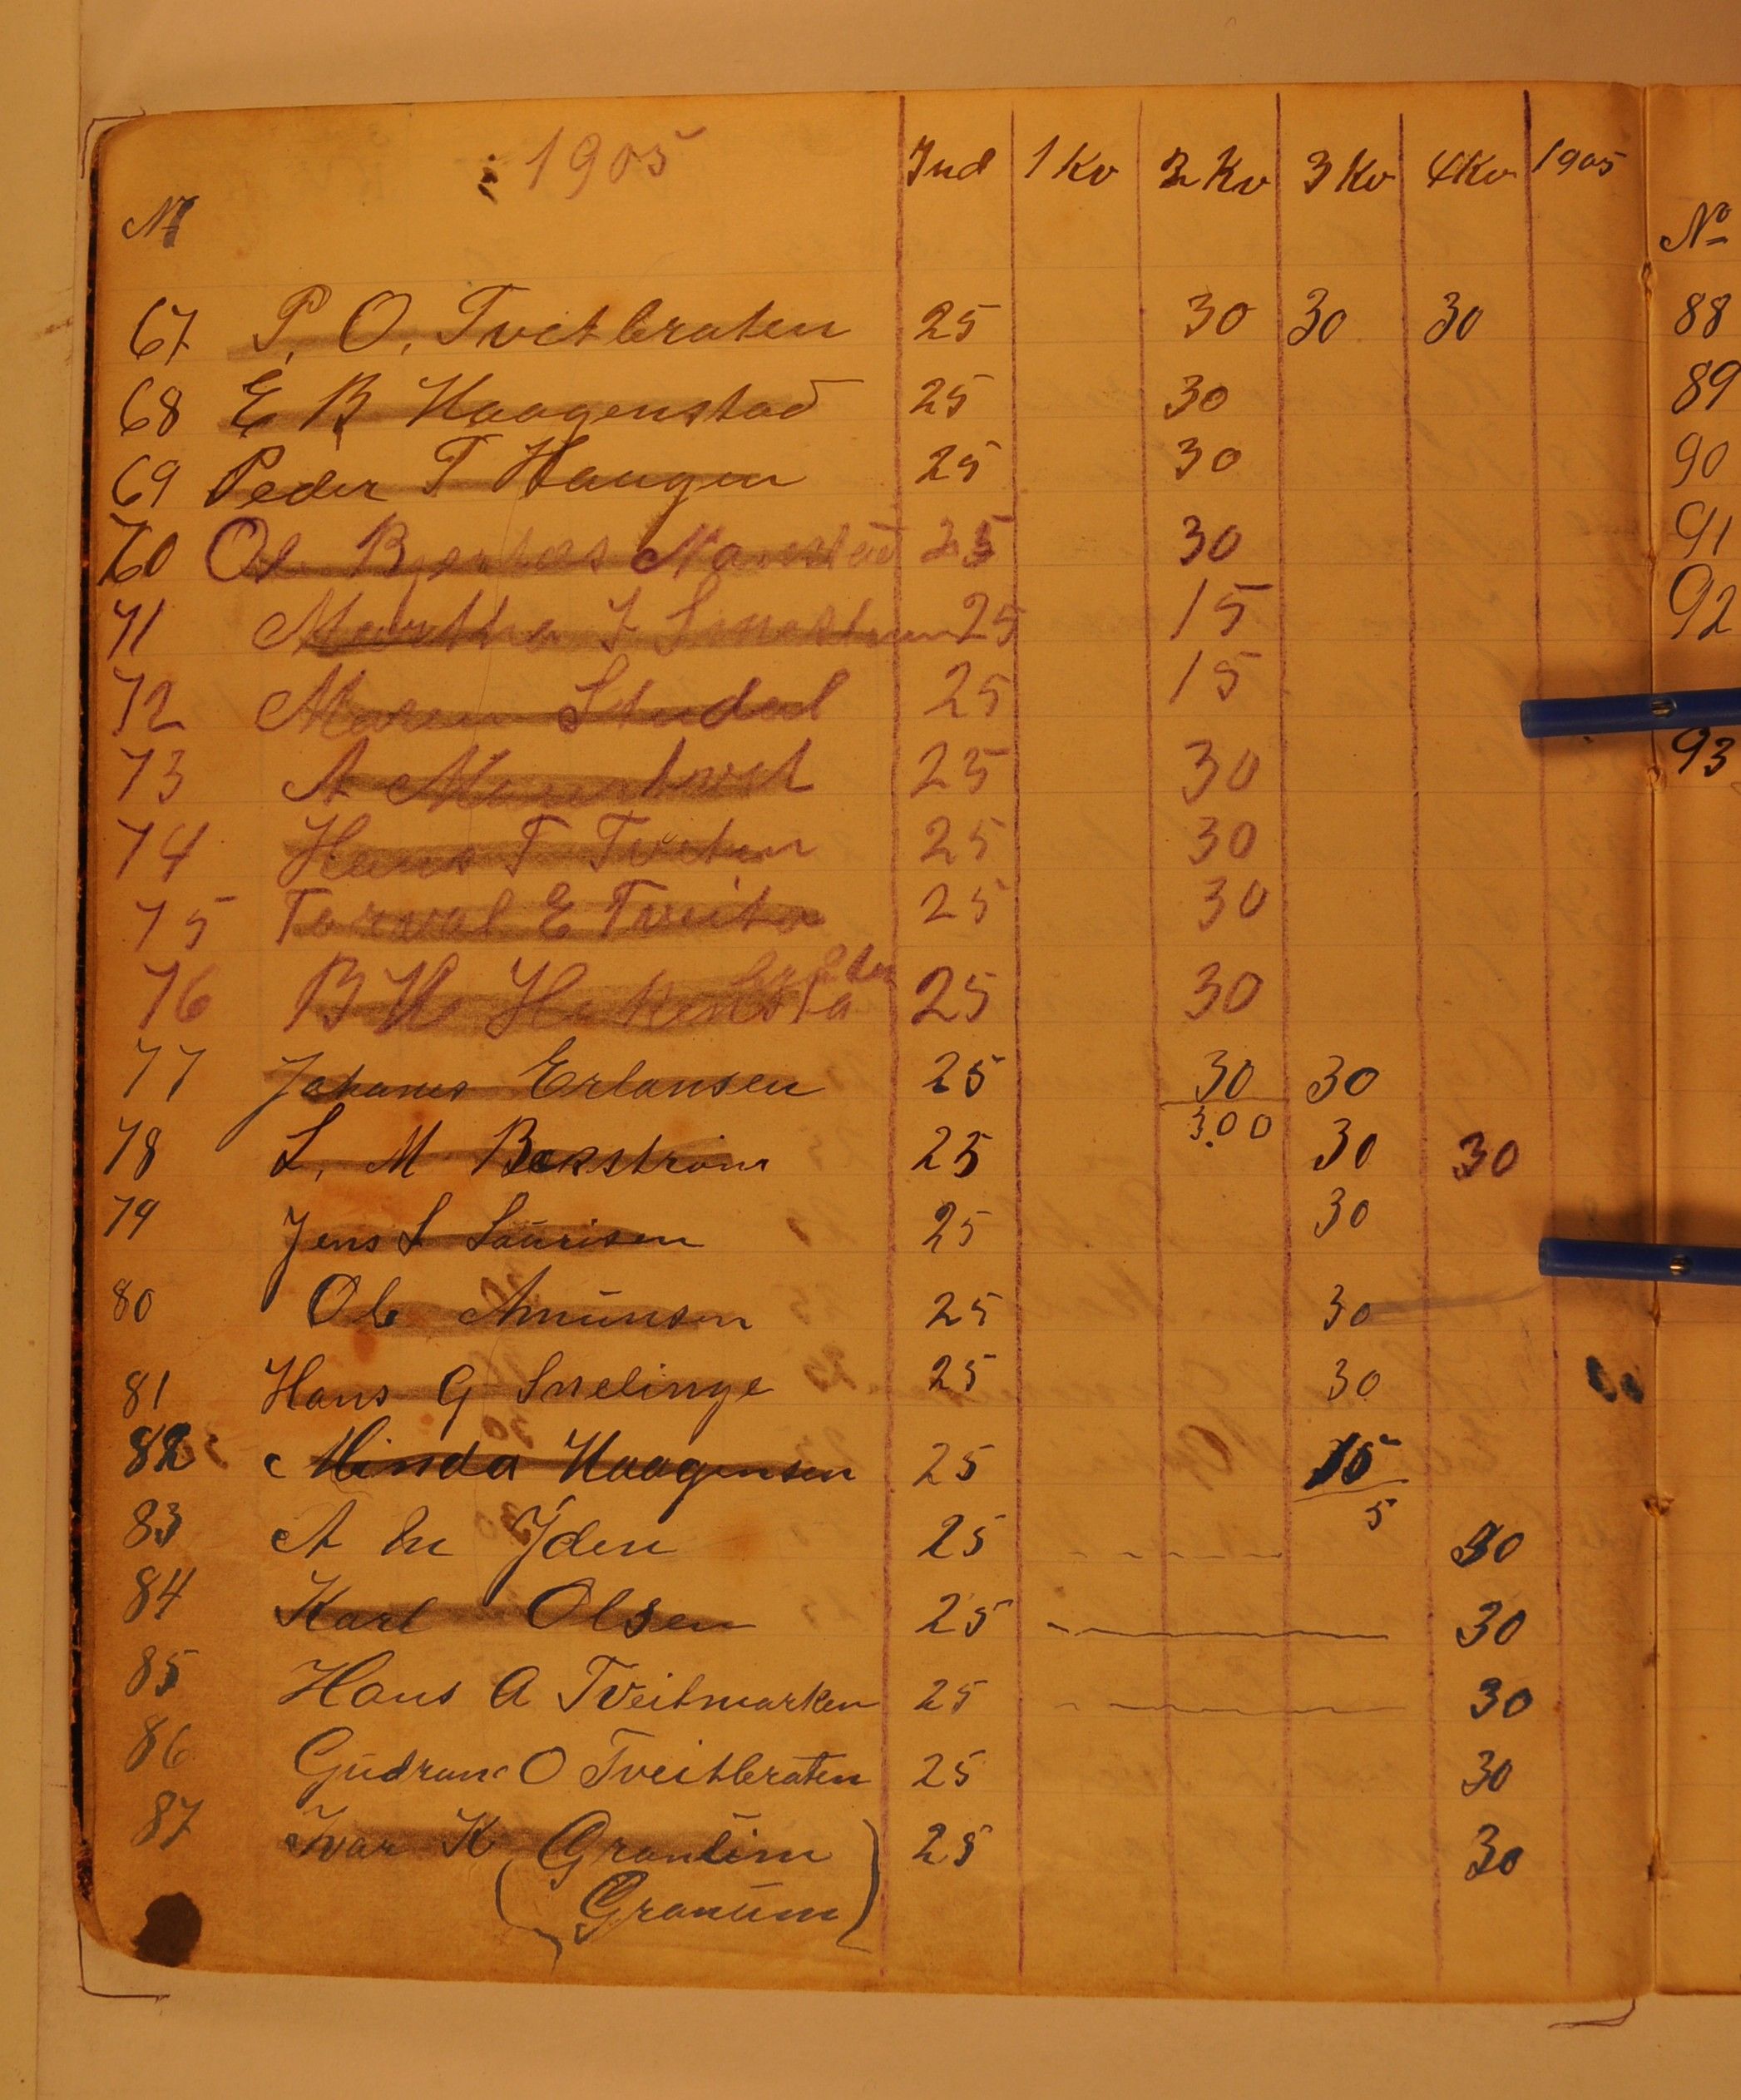 i 1905 Ind 1 Kv 2 Kv 3 Kv 4 Kv 1905
N
67 P. O. Tveitbraten 25 30 30 30
68 E B Haagenstad 25 30
69 Peder T Haugen 25 30
70 Ol 25 30
71 Marthe 25 15
72 Maren Studal 25 15
73 A 25 30
74 Hans T Tveten 25 30
75 Torval E Tveita 25 30
76 B H 25 30
77 Johanes Erlansen 25 30 30
3.00
78 L. M Bekström 25 30 30
79 Jens L Laurisen 25 30
80 Ole Amunsen 25 30
81 Hans G Snelinge 25 30
82 Minda Haagensen 25 15
5
83 A M Iden 25 30
84 Karl Olsen 25 30
85 Hans A Tveitmarken 25 30
86 Gudrun O Tveitbraten 25 30
87 Ivar K Granlim 25 30
(Granum)
No
88
89
90
91
92
93